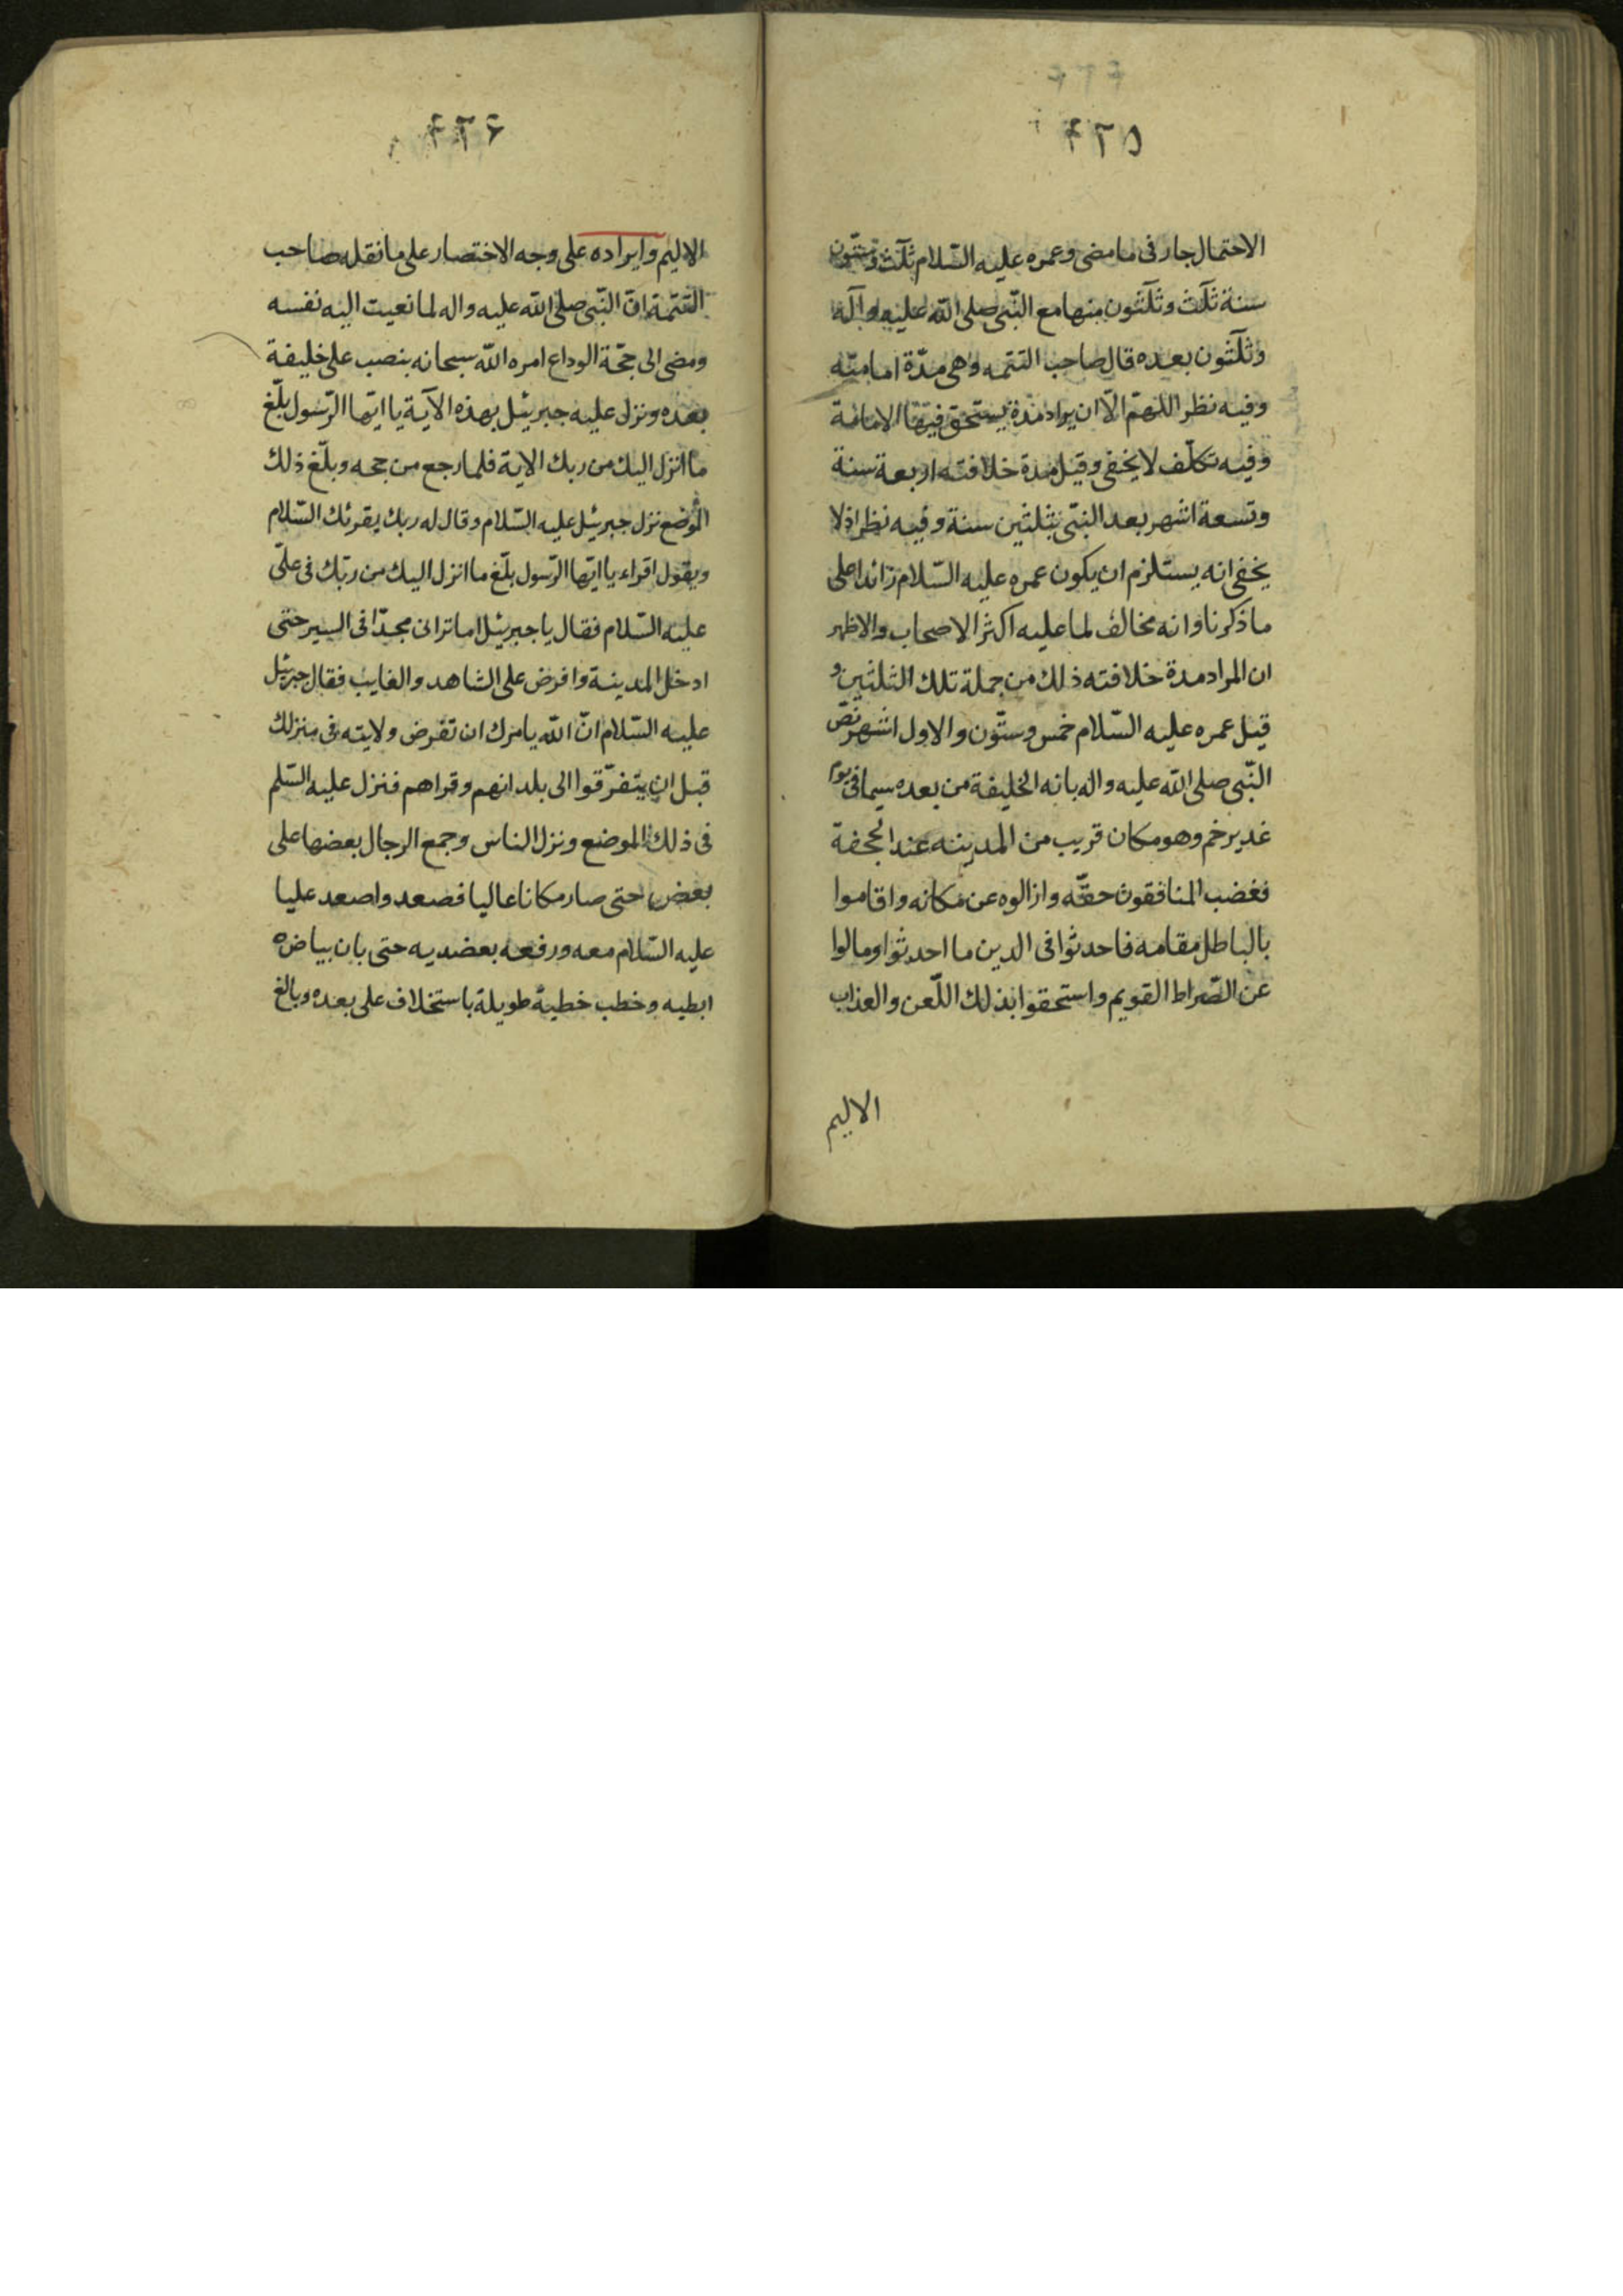 ۴۲۵
الاحتمال جار فى ما مضى وعمره عليه السّلام ثلث وستّون
سنة ثلث وثلثون منها مع النّبى صلى اللّه عليه وآله
وثلثون بعده قال صاحب التتمه وهى مدّة امامتّه
وفيه نظر اللهمّ الّا ان يراد مدة يستحق فيها الامامة
وفيه تكلّف لا يخفى وقيل مدة خلافته اربعة سنة
وتسعة اشهر بعد النبّى بثلثين سنة وفيه نظر اذ لا
يخفى انه يستلزم ان يكون عمره عليه السّلام زائدا على
ما ذكرنا وانه مخالف لما عليه اكثر الاصحاب والاظهر
ان المراد مدة خلافته ذلك من جملة تلك الثلثين و
قيل عمره عليه السّلام خمس وستّون والاول اشهر نصّ
النّبى صلى اللّه عليه واله بانه الخليفة من بعده سيما فى يوم
غدير خم وهو مكان قريب من المدينه عند الجحفة
فغضب المنافقون حقّه وازالوه عن مكانه واقاموا
بالباطل مقامه فاحدثوا فى الدين ما احدثوا ومالوا
عن الصّراط القويم واستحقوا بذلك اللّعن والعذاب
الاليم
۴۲۶
الاليم وايراده على وجه الاختصار على ما نقله صاحب
التتمّة انّ النّبى صلى اللّه عليه واله لما نعيت اليه نفسه
ومضى الى حجّة الوداع امره اللّه سبحانه بنصب على خليفة
بعده ونزل عليه جبرئيل بهذه الآية يا ايّها الرّسول بلّغ
ما انزل اليك من ربك الاية فلما رجع من حجه وبلّغ ذلك
الموضع نزل جبرئيل عليه السّلام وقال له ربك يقرئك السّلام
ويقول اقراء يا ايّها الرّسول بلّغ ما انزل اليك من ربّك فى علىّ
عليه السّلام فقال يا جبرئيل اما ترانى مجدّا فى السير حتى
ادخل المدينة وافرض على الشاهد والغايب فقال جبرئيل
عليه السّلام انّ اللّه يامرك ان تفرض ولايته فى منزلك
قبل ان يتفرّقوا الى بلدانهم وقراهم فنزل عليه السّلم
فى ذلك الموضع ونزل الناس وجمع الرحال بعضها على
بعض حتى صار مكانا عاليا فصعد واصعد عليا
عليه السّلام معه ورفعه بعضديه حتى بان بياض
ابطيه وخطب خطبة طويلة باستخلاف على بعده وبالغ